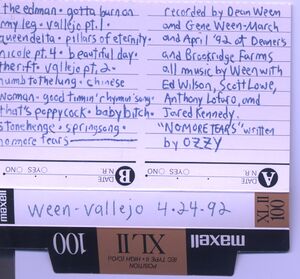 the edman · gotta burn on
my leg · vallejo pt. 1 ·
queen delta · pillars of eternity ·
nicole pt. 4 · beautiful day ·
the rift · vallejo pt. 2 ·
numb to the lung · chinese
woman · good timin' rhymin' song ·
that's poppycock · baby bitch ·
stonehenge · springsong ·
no more tears
recorded by Dean Ween
and Gene Ween - March
and April '92 at Deaner's
and Brookridge Farms
all music by Ween with
Ed Wilson, Scott Lowe,
Anthony Loturo, and
Jared Kennedy.
"NO MORE TEARS" written
by OZZY
B DATE N.R. YES NO
A DATE N.R. YES NO
maxell
ween - vallejo 4·24·92
XL II 100
POSITION
IEC TYPE II · HIGH (CrO2)
100 XL II maxell